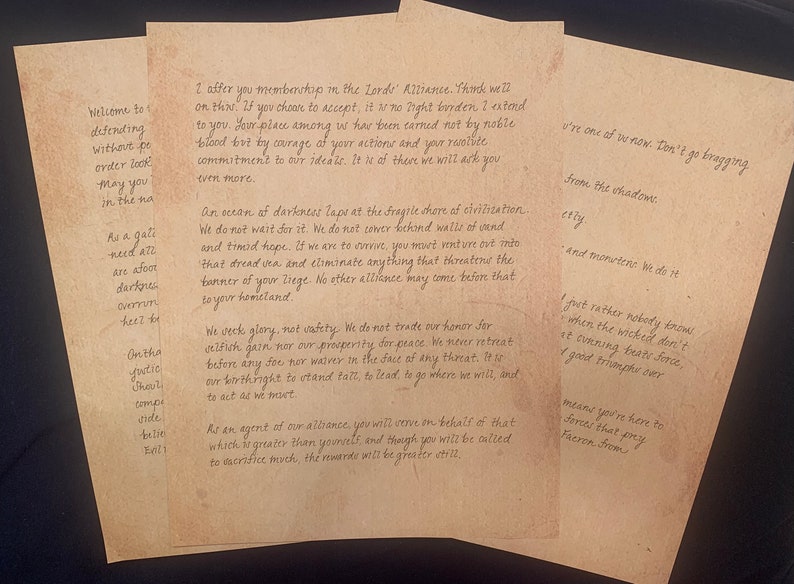 Welcome to
defending
Without pe
order look
May you
in the na
As a gall
need all
are afoo
darkness
overrun
heel be
Ontha
justic
Shoul
compe
side
belie
Evil
I offer you membership in the Lords' Alliance. Think well
on this. If you choose to accept, it is no light burden I extend
to you. Your place among us has been earned not by noble
blood but by courage of your actions and your resolute
commitment to our ideals. It is of these we will ask you
even more.
An ocean of darkness laps at the fragile shore of civilization.
We do not wait for it. We do not cower behind walls of sand
and timid hope. If we are to survive, you must venture out into
that dread sea and eliminate anything that threatens the
banner of your liege. No other alliance may come before that
to your homeland.
We seek glory, not safety. We do not trade our honor for
selfish gain nor our prosperity for peace. We never retreat
before any foe nor waiver in the face of any threat. It is
our birthright to stand tall, to lead, to go where we will, and
to act as we must.
As an agent of our alliance, you will serve on behalf of that
which is greater than yourself, and though you will be called
to sacrifice much, the rewards will be greater still.
u're one of us now. Don't go bragging
from the shadows.
etly.
and monsters. We do it
d just rather nobody know.
when the wicked don't
at cunning beats force,
d good triumphs over
means you're here to
forces that prey
Faeron from